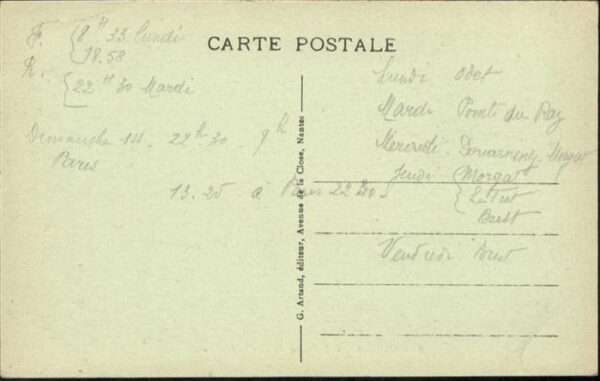 CARTE POSTALE
F. { 8 H 33 lundi
18.58
R. { 22 H 30 Mardi
Dimanche 22 h 30 9 h
Paris
13.25 à Paris 22 30
G. Artaud, éditeur, Avenue de la Close, Nantes
Lundi Odet
Mardi Pointe du Raz
Mercredi Douarnenez Morgat
Jeudi { Morgat
Brest
Vendredi Brest